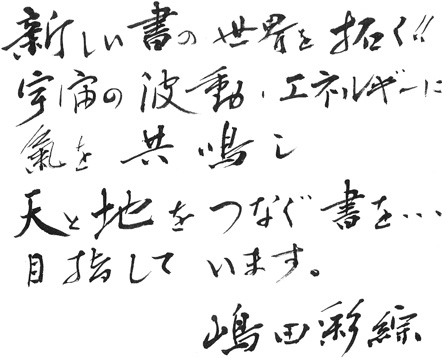 新しい書の世界を拓く!!
宇宙の波動、エネルギーに
氣を共鳴し
天と地をつなぐ書を…
目指しています。
嶋田彩綜